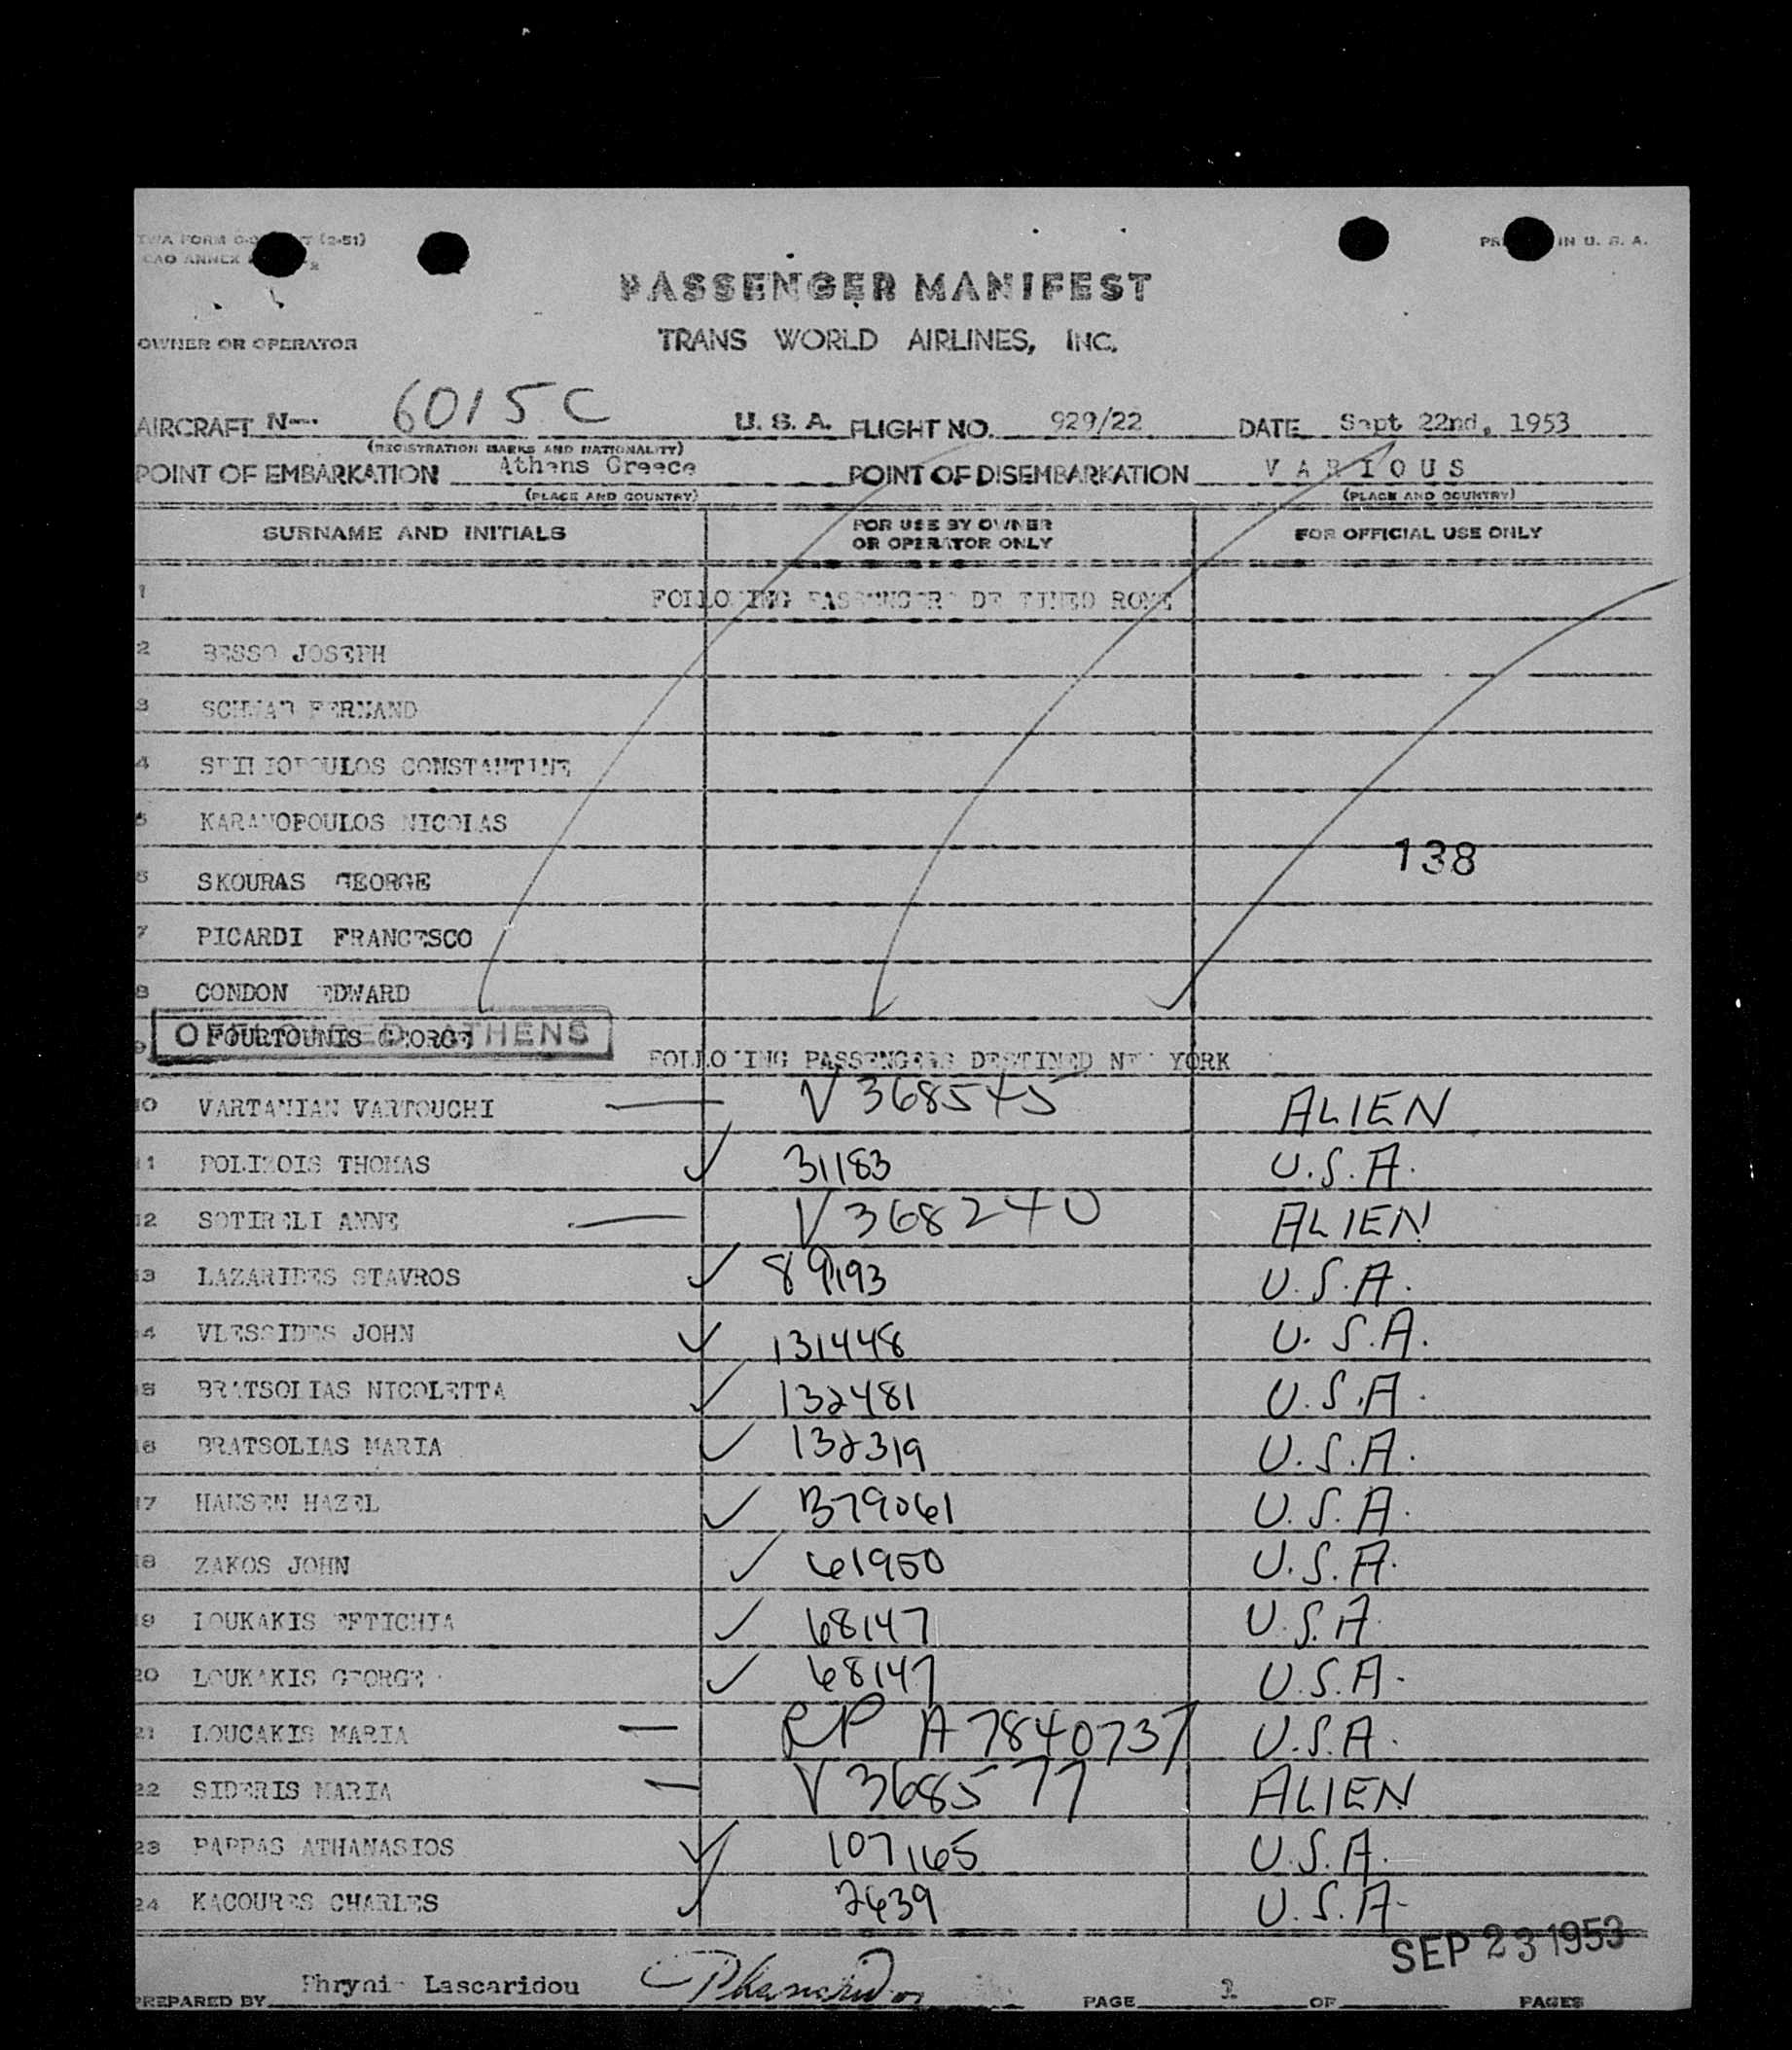 TWA FORM (2-51)
ICAO ANNEX
IN U. S. A.
PASSENGER MANIFEST
OWNER OR OPERATOR TRANS WORLD AIRLINES, INC.
AIRCRAFT N 6015C U. S. A. FLIGHT NO. 929/22 DATE Sept 22nd, 1953
(REGISTRATION MARKS AND NATIONALITY)
POINT OF EMBARKATION Athens Greece POINT OF DISEMBARKATION VARIOUS
(PLACE AND COUNTRY) (PLACE AND COUNTRY)
SURNAME AND INITIALS FOR USE BY OWNER OR OPERATOR ONLY FOR OFFICIAL USE ONLY
1 FOLLOWING PASSENGERS DESTINED ROME
2 BESSO JOSEPH
3 SCHWAB FERNAND
4 SPILIOPOULOS CONSTANTINE
5 KARANOPOULOS NICOLAS
138
6 SKOURAS GEORGE
7 PICARDI FRANCESCO
8 CONDON EDWARD
9 FOURTOUNIS GEORGE
ATHENS
FOLLOWING PASSENGERS DESTINED NEW YORK
10 VARTANIAN VARTOUCHI V 368545 ALIEN
11 POLIZOIS THOMAS 31183 U.S.A.
12 SOTIRELI ANNE V 368240 ALIEN
13 LAZARIDES STAVROS 89193 U.S.A.
14 VLESSIDES JOHN 131448 U.S.A.
15 BRATSOLIAS NICOLETTA 132481 U.S.A.
16 BRATSOLIAS MARIA 132319 U.S.A.
17 HANSEN HAZEL 379061 U.S.A.
18 ZAKOS JOHN 61950 U.S.A.
19 LOUKAKIS EFTICHIA 68147 U.S.A.
20 LOUKAKIS GEORGE 68147 U.S.A.
21 LOUCAKIS MARIA RP A7840737 U.S.A.
22 SIDERIS MARIA V 368577 ALIEN
23 PAPPAS ATHANASIOS 107165 U.S.A.
24 KACOURES CHARLES 2639 U.S.A.
SEP 23 1953
PREPARED BY Phryni Lascaridou PAGE 1 OF PAGES